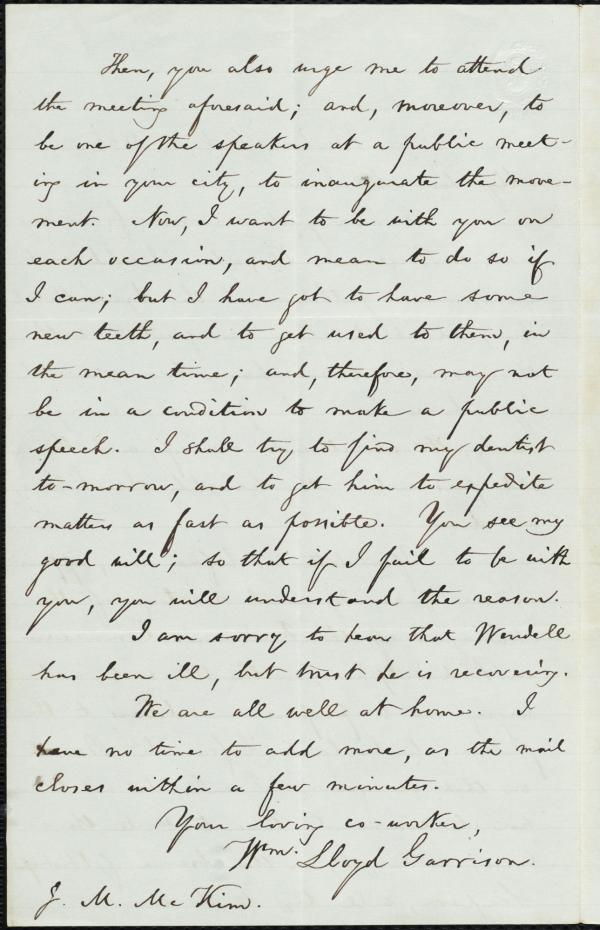 Then, you also urge me to attend
the meeting aforesaid; and, moreover, to
be one of the speakers at a public meet-
ing in your city, to inaugurate the move-
ment. Now, I want to be with you on
each occasion, and mean to do so if
I can; but I have got to have some
new teeth, and to get used to them, in
the mean time; and, therefore, may not
be in a condition to make a public
speech. I shall try to find my dentist
to-morrow, and to get him to expedite
matters as fast as possible. You see my
good will; so that if I fail to be with
you, you will understand the reason.
I am sorry to hear that Wendell
has been ill, but trust he is recovering.
We are all well at home. I
have no time to add more, as the mail
closes within a few minutes.
Your loving co-worker,
Wm. Lloyd Garrison.
J. M. McKim.